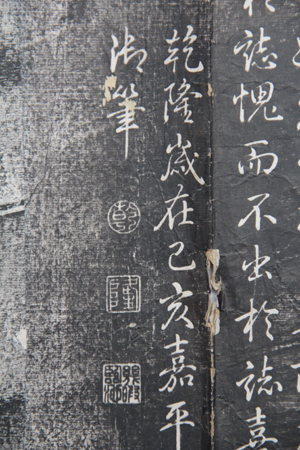 於誌愧而不出於誌喜
乾隆歲在己亥嘉平
御筆
乾
隆